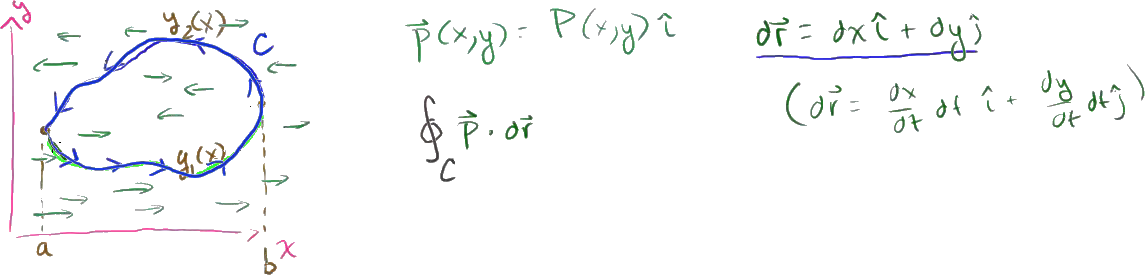 y
y₂(x)
C
y₁(x)
a
b
x
p⃗(x,y) = P(x,y) î
∮_C p⃗ · dr⃗
dr⃗ = dx î + dy ĵ
(dr⃗ = dx/dt dt î + dy/dt dt ĵ)